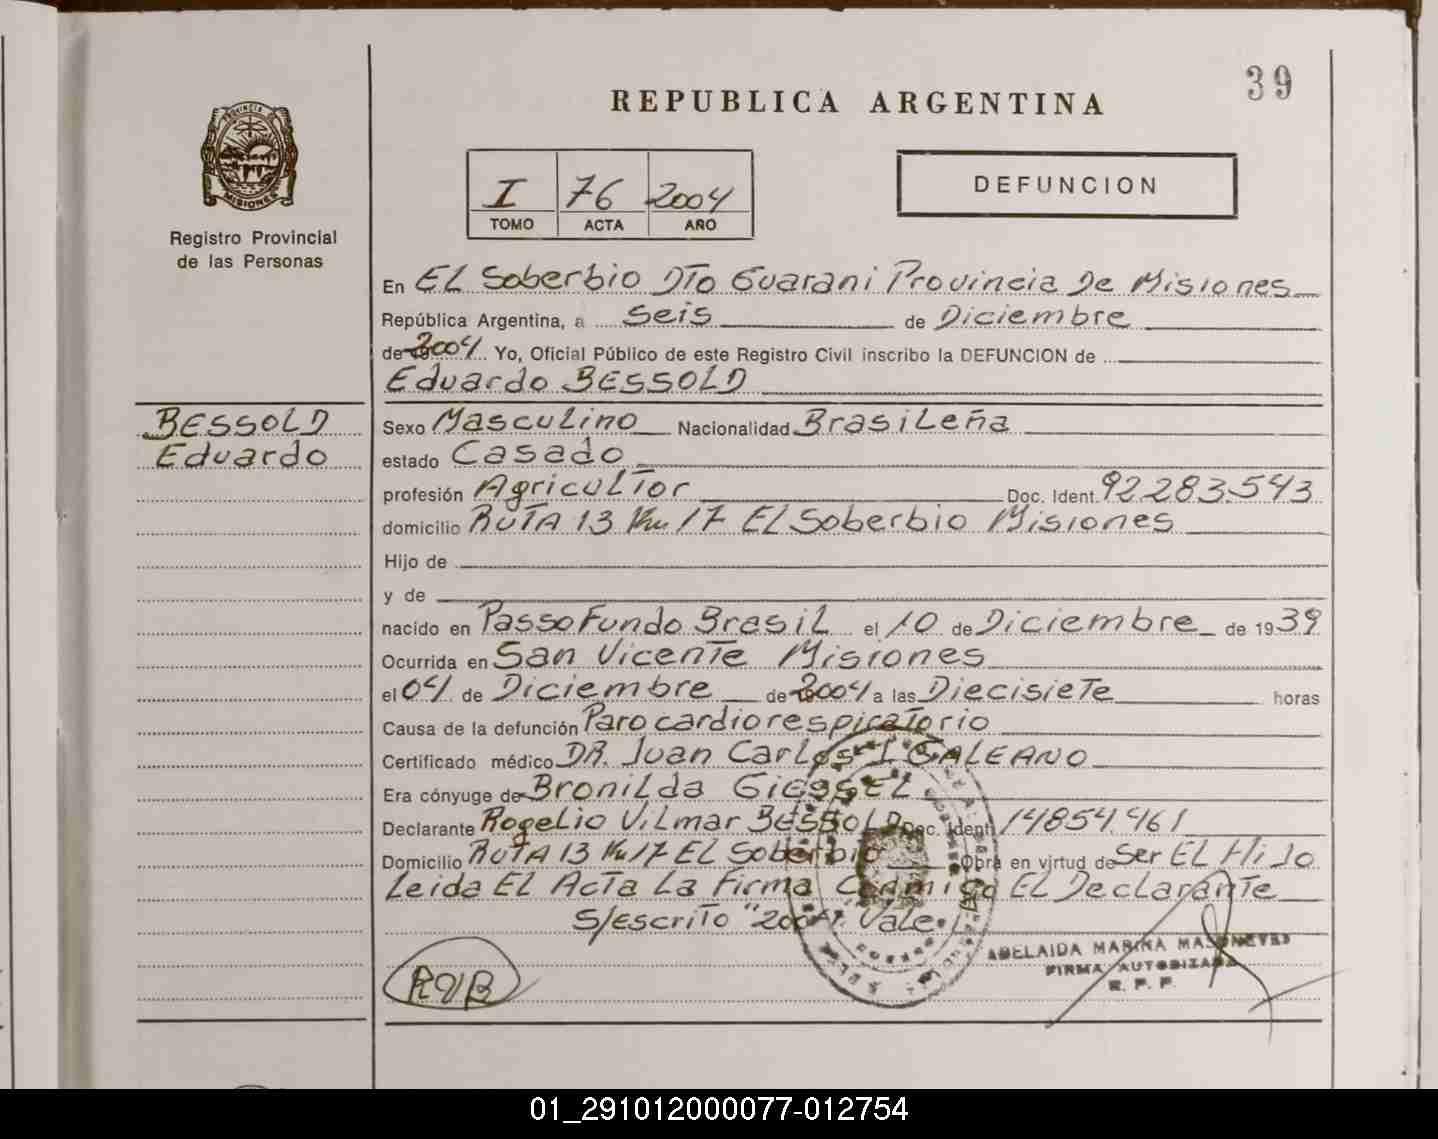 39
REPUBLICA ARGENTINA
PROVINCIA DE
MISIONES
Registro Provincial
de las Personas
I 76 2004
TOMO ACTA AÑO
DEFUNCION
En EL Soberbio DTo Guarani Provincia De Misiones
República Argentina, a Seis de Diciembre
de 2004 Yo, Oficial Público de este Registro Civil inscribo la DEFUNCION de
Eduardo BESSOLD
BESSOLD
Eduardo
Sexo Masculino Nacionalidad Brasileña
estado Casado
profesión Agricultor Doc. Ident. 92283.543
domicilio RUTA 13 Km 17 El Soberbio Misiones
Hijo de
y de
nacido en Passo Fundo Brasil el 10 de Diciembre de 1939
Ocurrida en San Vicente Misiones
el 04 de Diciembre de 2004 a las Diecisiete horas
Causa de la defunción Paro cardiorespiratorio
Certificado médico DR. Juan Carlos I GALEANO
Era cónyuge de Bronilda GIESSEL
Declarante Rogelio Vilmar BESSOLD Doc. Ident. 14854.461
Domicilio RUTA 13 Km 17 El Soberbio Obra en virtud de Ser El Hijo
Leida El Acta La Firma Conmigo El Declarante
S/escrito "2004". Vale.
RVB
ADELAIDA MARINA
FIRMA AUTORIZADA
R. P. P.
01_291012000077-012754